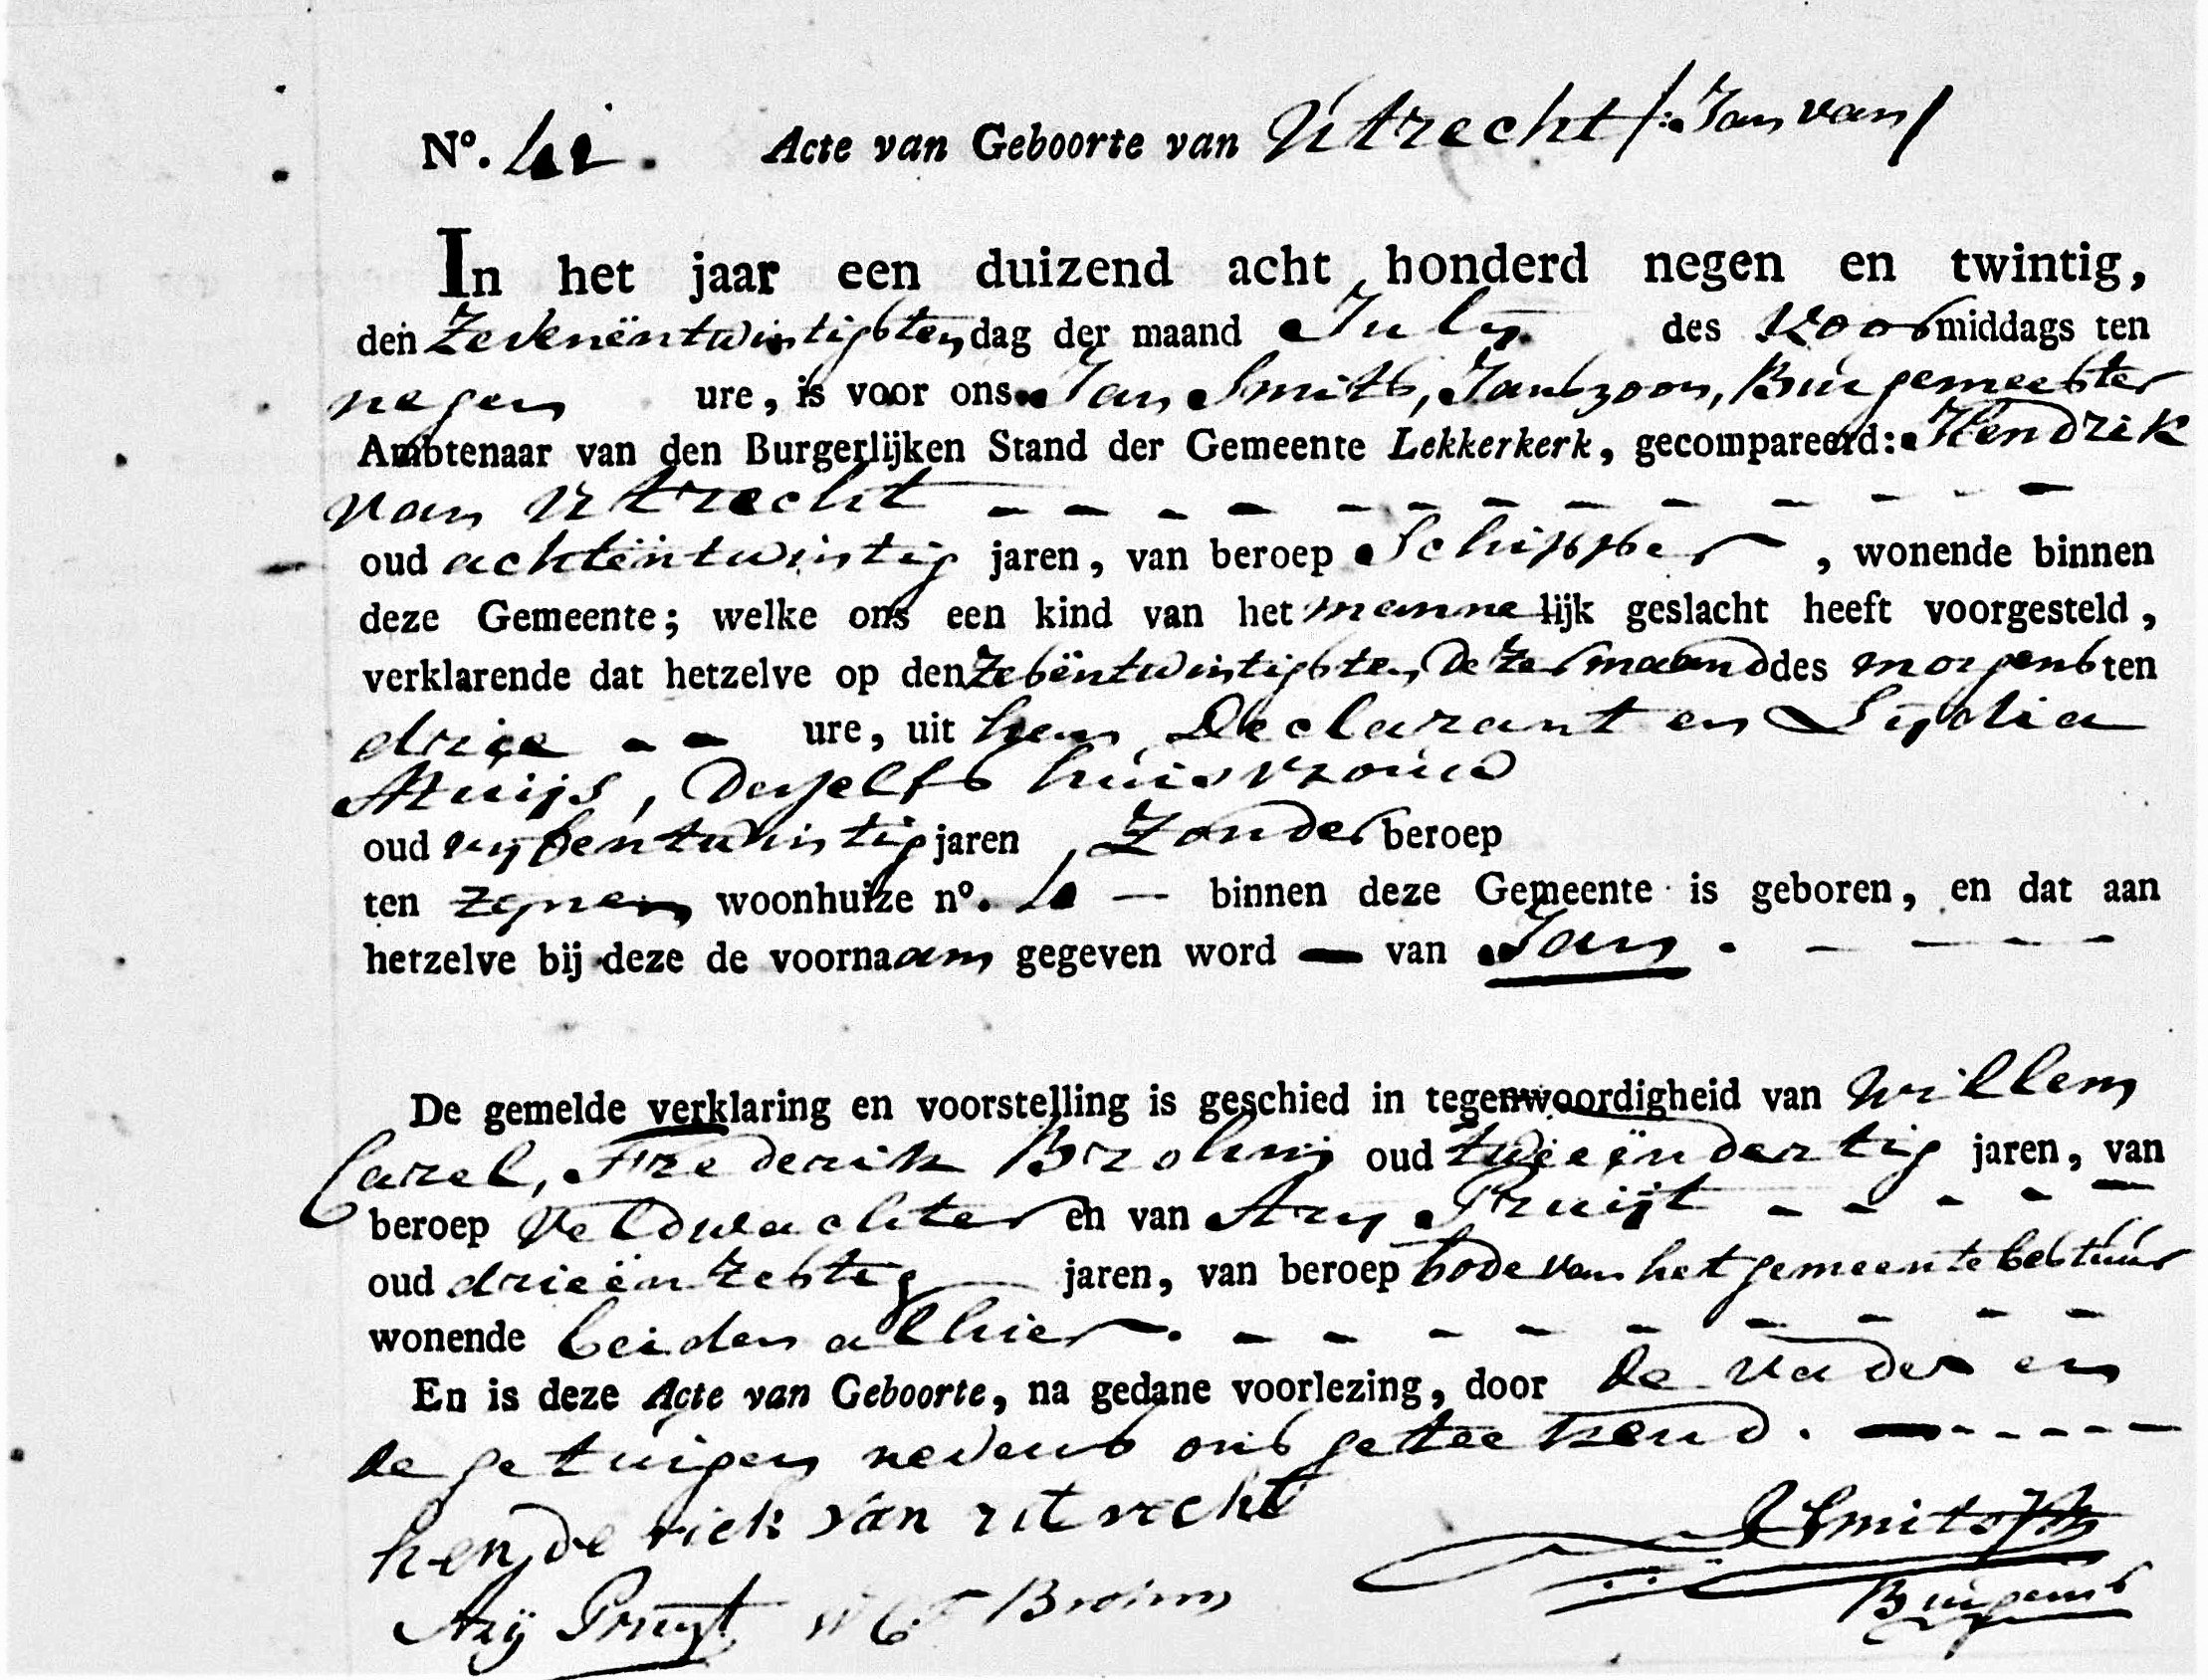 N°. 42. Acte van Geboorte van Utrecht /: Jan van /
In het jaar een duizend acht honderd negen en twintig,
den Zevenëntwintigsten dag der maand July des Voormiddags ten
negen ure, is voor ons Jan Smits, Janszoon, Burgemeester
Ambtenaar van den Burgerlijken Stand der Gemeente Lekkerkerk, gecompareerd: Hendrik
van Utrecht
oud achtëntwintig jaren, van beroep Schipper, wonende binnen
deze Gemeente; welke ons een kind van het mannelijk geslacht heeft voorgesteld,
verklarende dat hetzelve op den Zesëntwintigsten dezer maand des morgens ten
drie ure, uit hem Declarant en Lydia
Muijs, deszelfs huisvrouw
oud vyfentwintig jaren, Zonder beroep
ten zynen woonhuize n°. — binnen deze Gemeente is geboren, en dat aan
hetzelve bij deze de voornaam gegeven word — van Jan.
De gemelde verklaring en voorstelling is geschied in tegenwoordigheid van Willem
Carel, Frederik oud tweeëndertig jaren, van
beroep Veldwachter en van Ary Pruijt
oud drieënzestig jaren, van beroep bode van het gemeente bestuur
wonende beiden alhier.
En is deze Acte van Geboorte, na gedane voorlezing, door de vader en
de getuigen nevens ons geteekend.
henderiek van utrecht
J Smits Jz
Burgemr
Arij Pruyt W C F